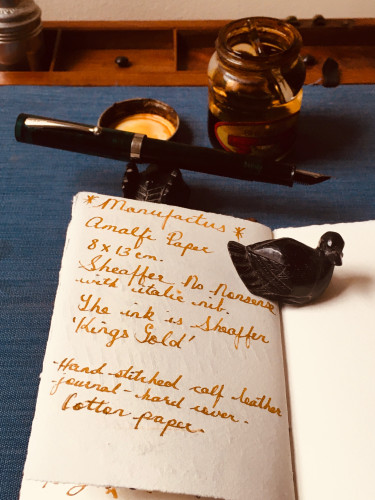 * Manufactus *
Amalfi Paper
8 x 13 cm.
Sheaffer No Nonsense
with italic nib.
The ink is Sheaffer
'Kings Gold'
Hand stitched calf leather
journal - hard cover.
Cotton paper.